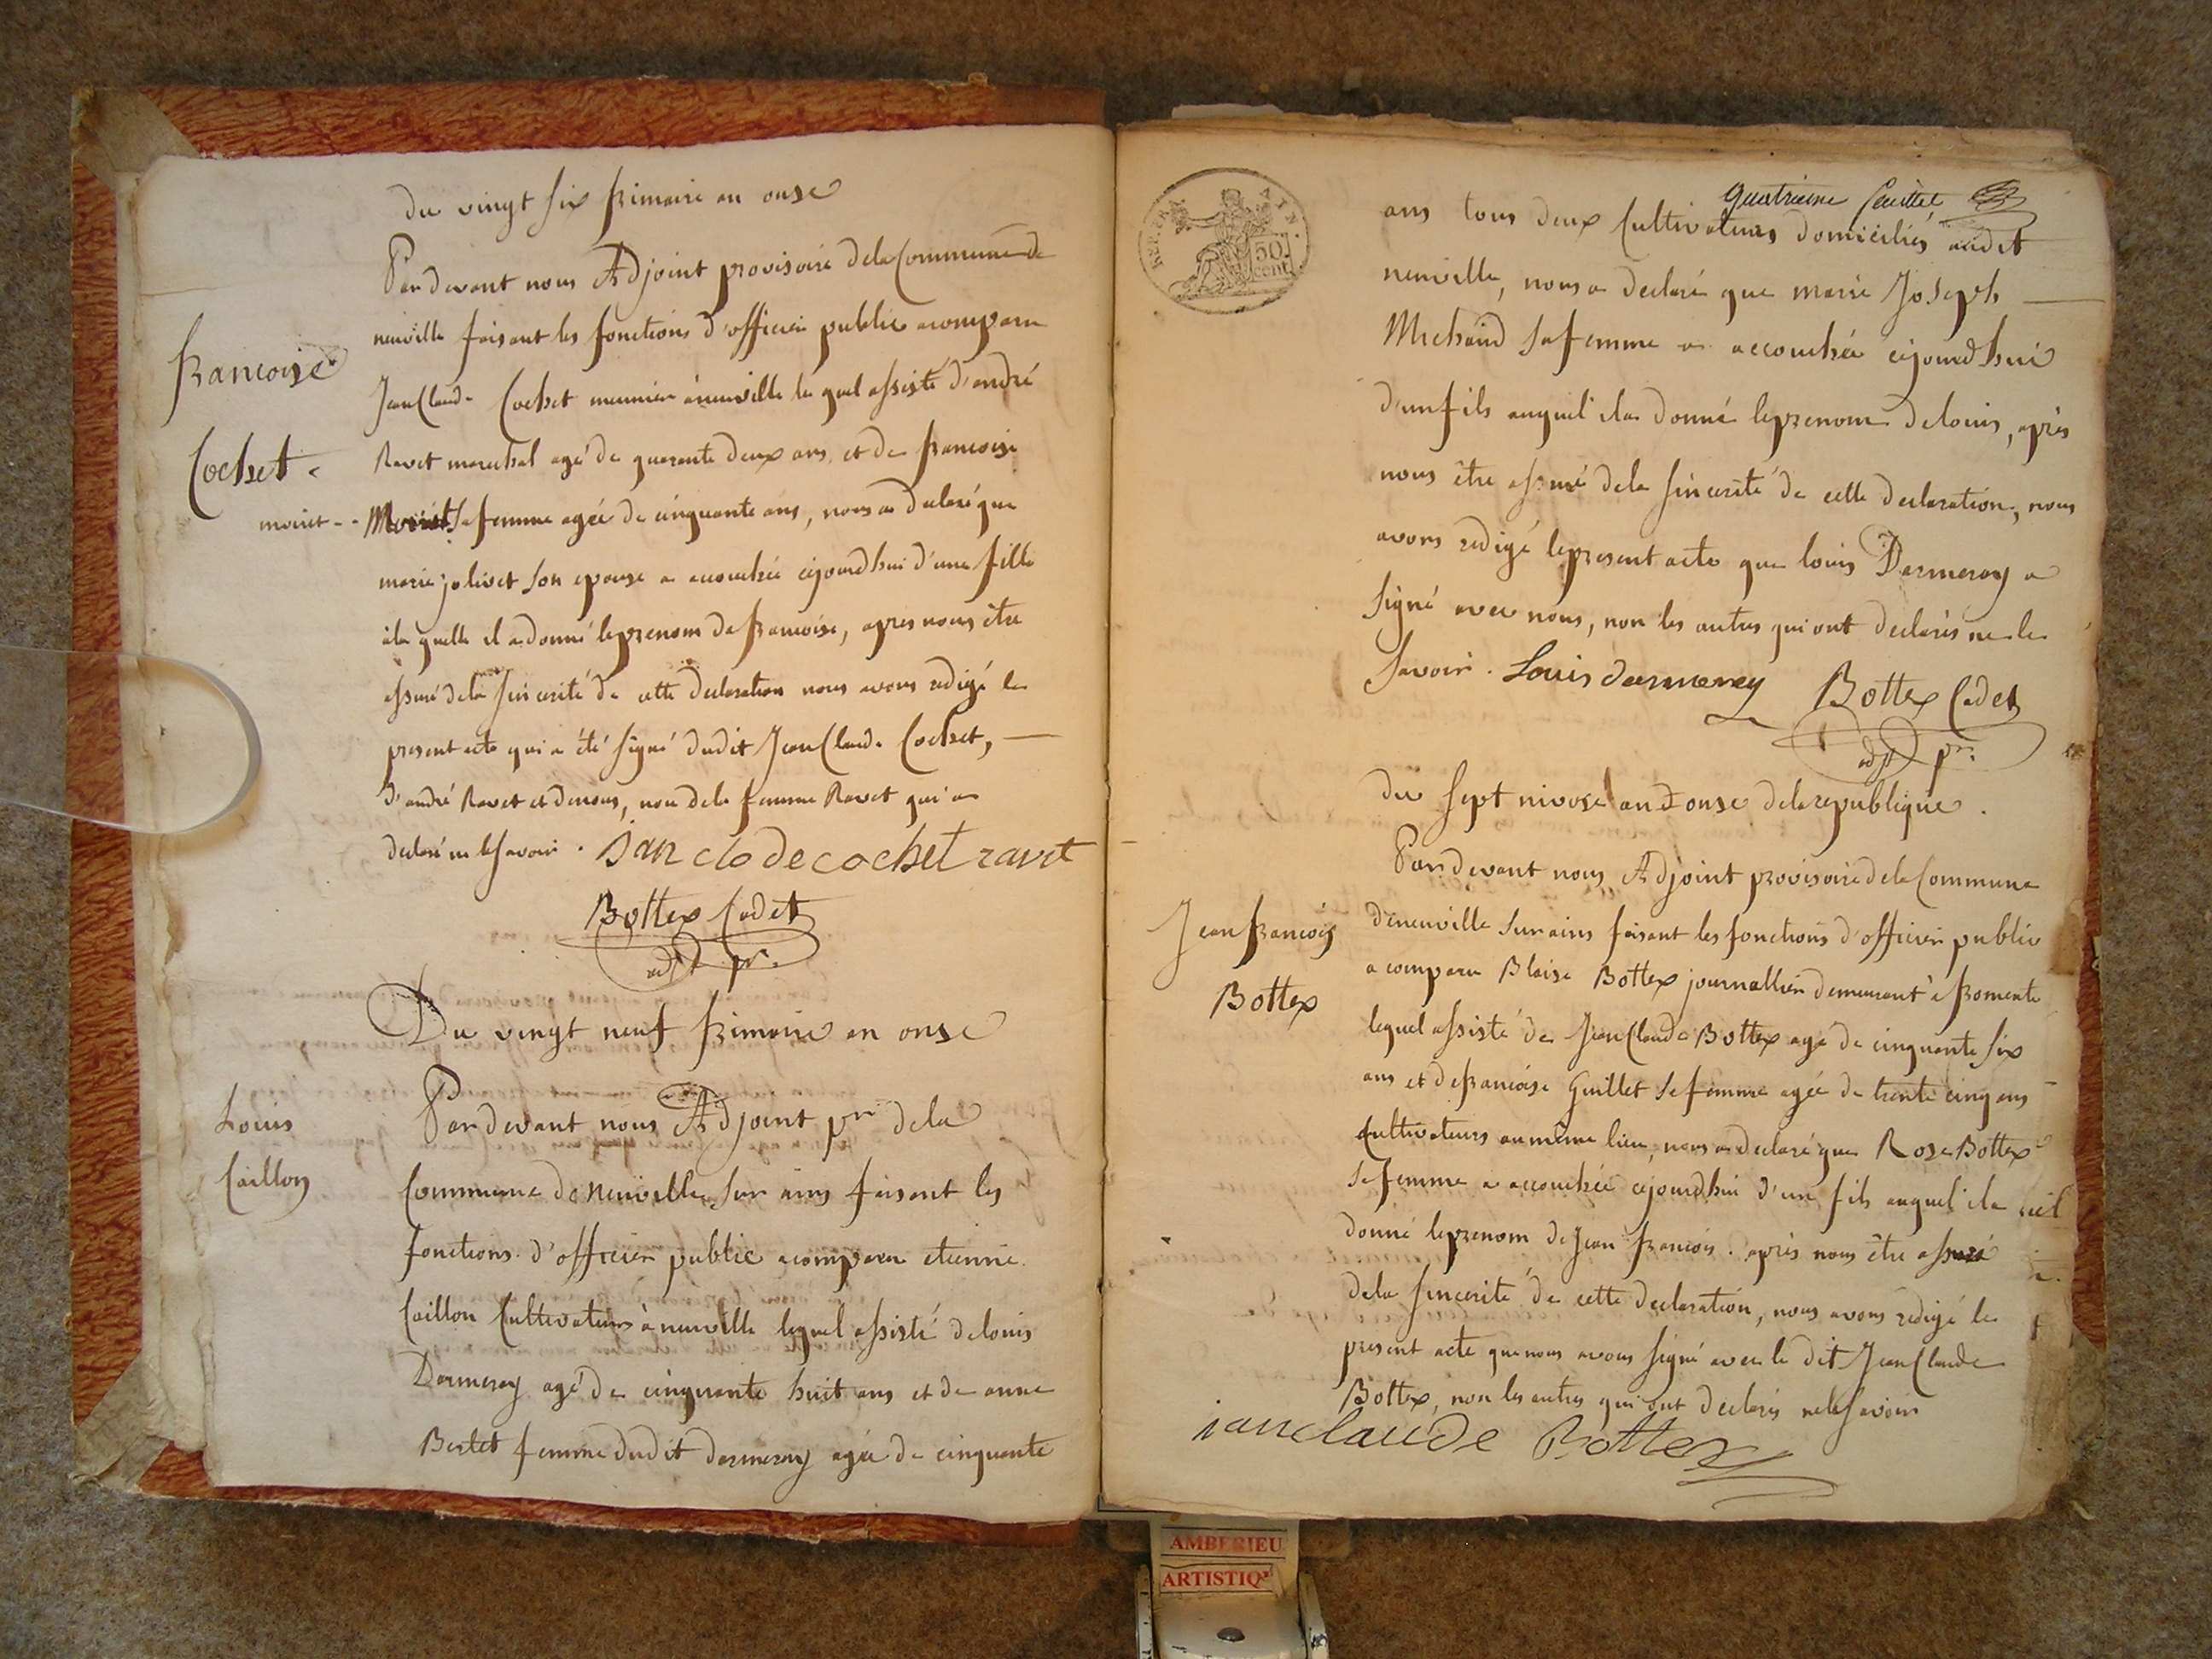 du vingt six frimaire an onse
Pardevant nous Adjoint provisoire dela Commune de
neuville faisant les fonctions d'officier public acomparu
francoise
Jean Claude Cochet meunier àneuville le quel assisté d'andré
Cochet
Ravet marechal agé de quarante deux ans et de francoise
moiret - - Moiret sa femme agée de cinquante ans, nous a declaré que
marie jolivet son epouse a accouchée cejourdhui d'une fille
àla quelle il adonné leprenom de francoise, apres nous être
assuré dela sincerité de cette declaration nous avons redigé le
present acte qui a été signé dudit Jean Claude Cochet,
d'andré Ravet et denous, non dela femme Ravet qui a
declaré ne lesavoir. Jan clode cochet ravet
Bottex Cadet
adjt pr.
Du vingt neuf frimaire an onse
Louis
Caillon
Pardevant nous Adjoint pr dela
Commune de Neuville sur ains faisant les
fonctions d'officier public acomparu etienne
Caillon Cultivateur à neuville lequel assisté delouis
Darmeray agé de cinquante huit ans et de anne
Bertet femme dudit darmeray agée de cinquante
REP. FRA. AIN.
50
cent
quatrieme feuillet
ans tous deux Cultivateurs domiciliés audit
neuville, nous a declaré que marie Joseph
Michaud sa femme a accouchée cejourdhui
d'unfils auquel ila donné leprenom delouis, après
nous être assuré dela sincerité de cette declaration, nous
avons redigé lepresent acte que louis Darmeray a
signé avec nous, non les autres qui ont declarés ne le
savoir. Louis darmeray Bottex Cadet
adjt pr.
du sept nivose an onse delarepublique.
Pardevant nous Adjoint provisoire dela Commune
Jean francois
Bottex
deneuville sur ains faisant les fonctions d'officier public
a comparu Blaise Bottex journallier demeurant à fromente
lequel assisté de Jean Claude Bottex agé de cinquante six
ans et defrancoise Guillet sa femme agée de trente cinq ans
Cultivateurs aumême lieu, nous a declaré que Rose Bottex
sa femme a accouchée cejourdhui d'un fils auquel ila
donné leprenom de Jean francois. après nous être assuré
dela sincerité de cette declaration, nous avons redigé le
present acte que nous avons signé avec le dit Jean Claude
Bottex, non les autres qui ont declarés nelesavoir
jan claude Bottex
AMBERIEU
ARTISTIQ